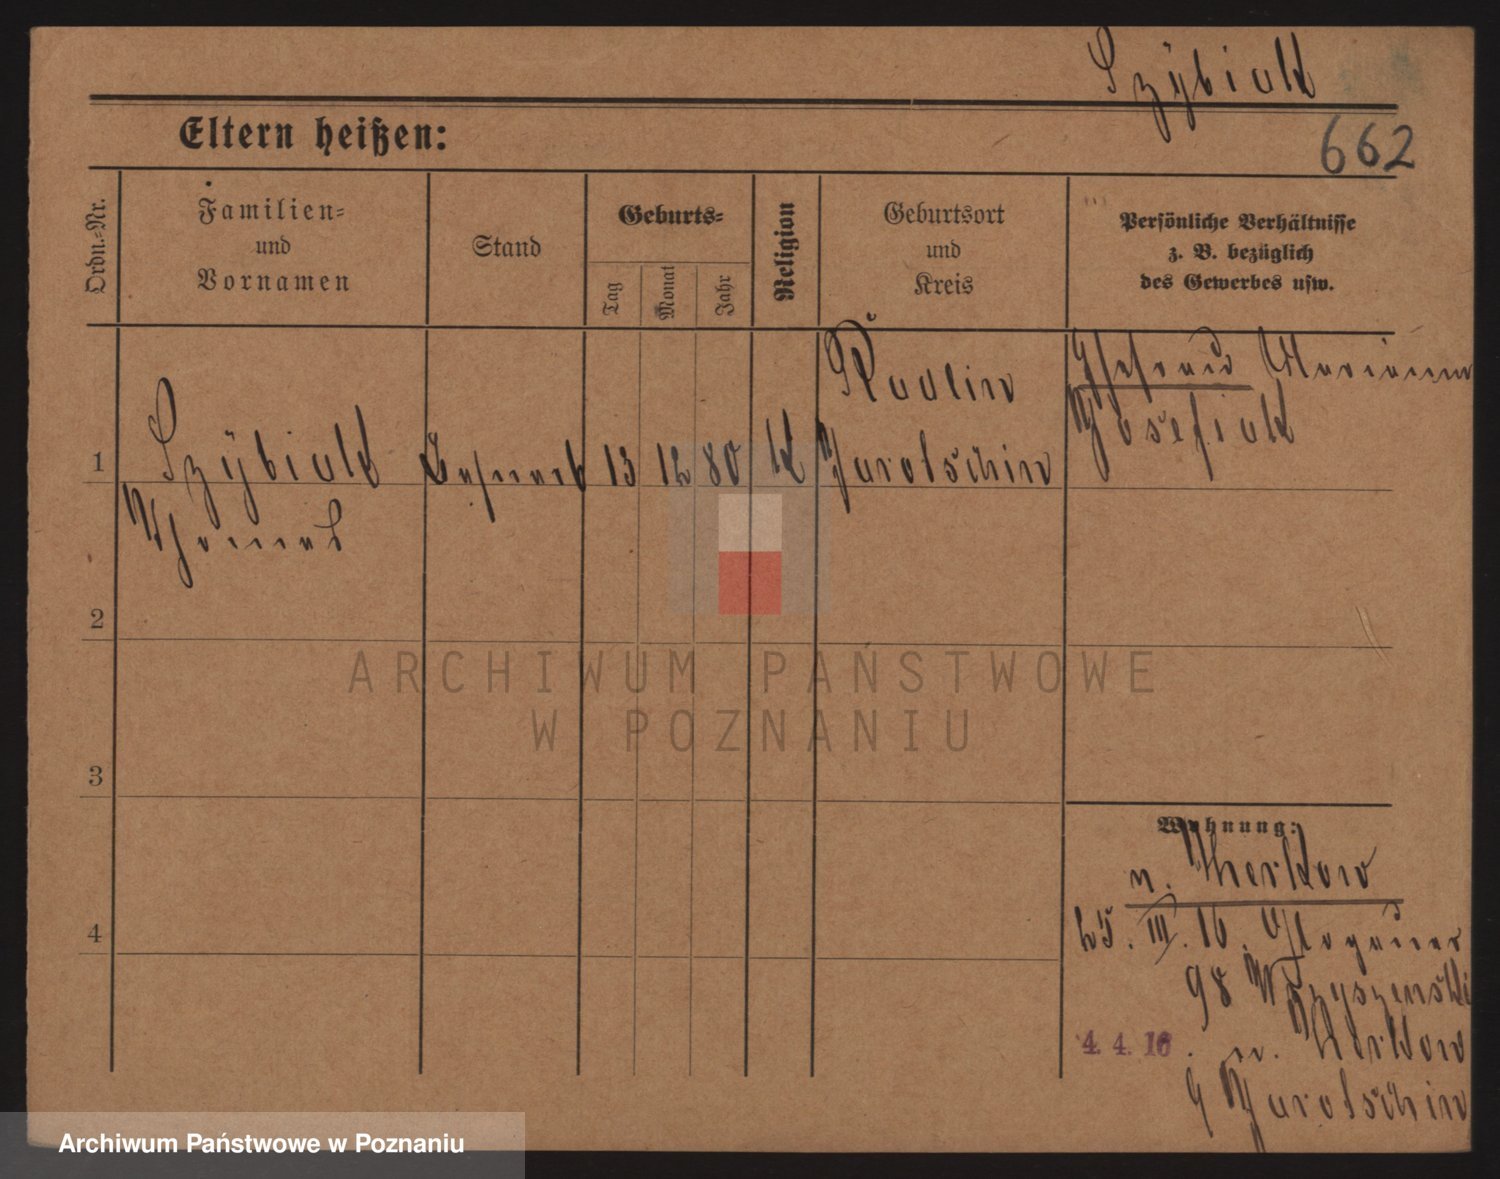 Szÿbiak
Eltern heißen:
662
Ordn.=Nr.
Familien=
und
Vornamen
Stand
Geburts=
Tag
Monat
Jahr
Religion
Geburtsort
und
Kreis
Persönliche Verhältnisse
z. B. bezüglich
des Gewerbes usw.
1
Szÿbiak
Thomas
13
12
80
K
Radlin
Jarotschin
Ehefrau Marianna
Josefiak
2
3
4
Wohnung:
n. Zherkow
25. III. 16. Glogauer
98
4. 4. 16. n. Zerkow
Jarotschin
ARCHIWUM PAŃSTWOWE
W POZNANIU
Archiwum Państwowe w Poznaniu